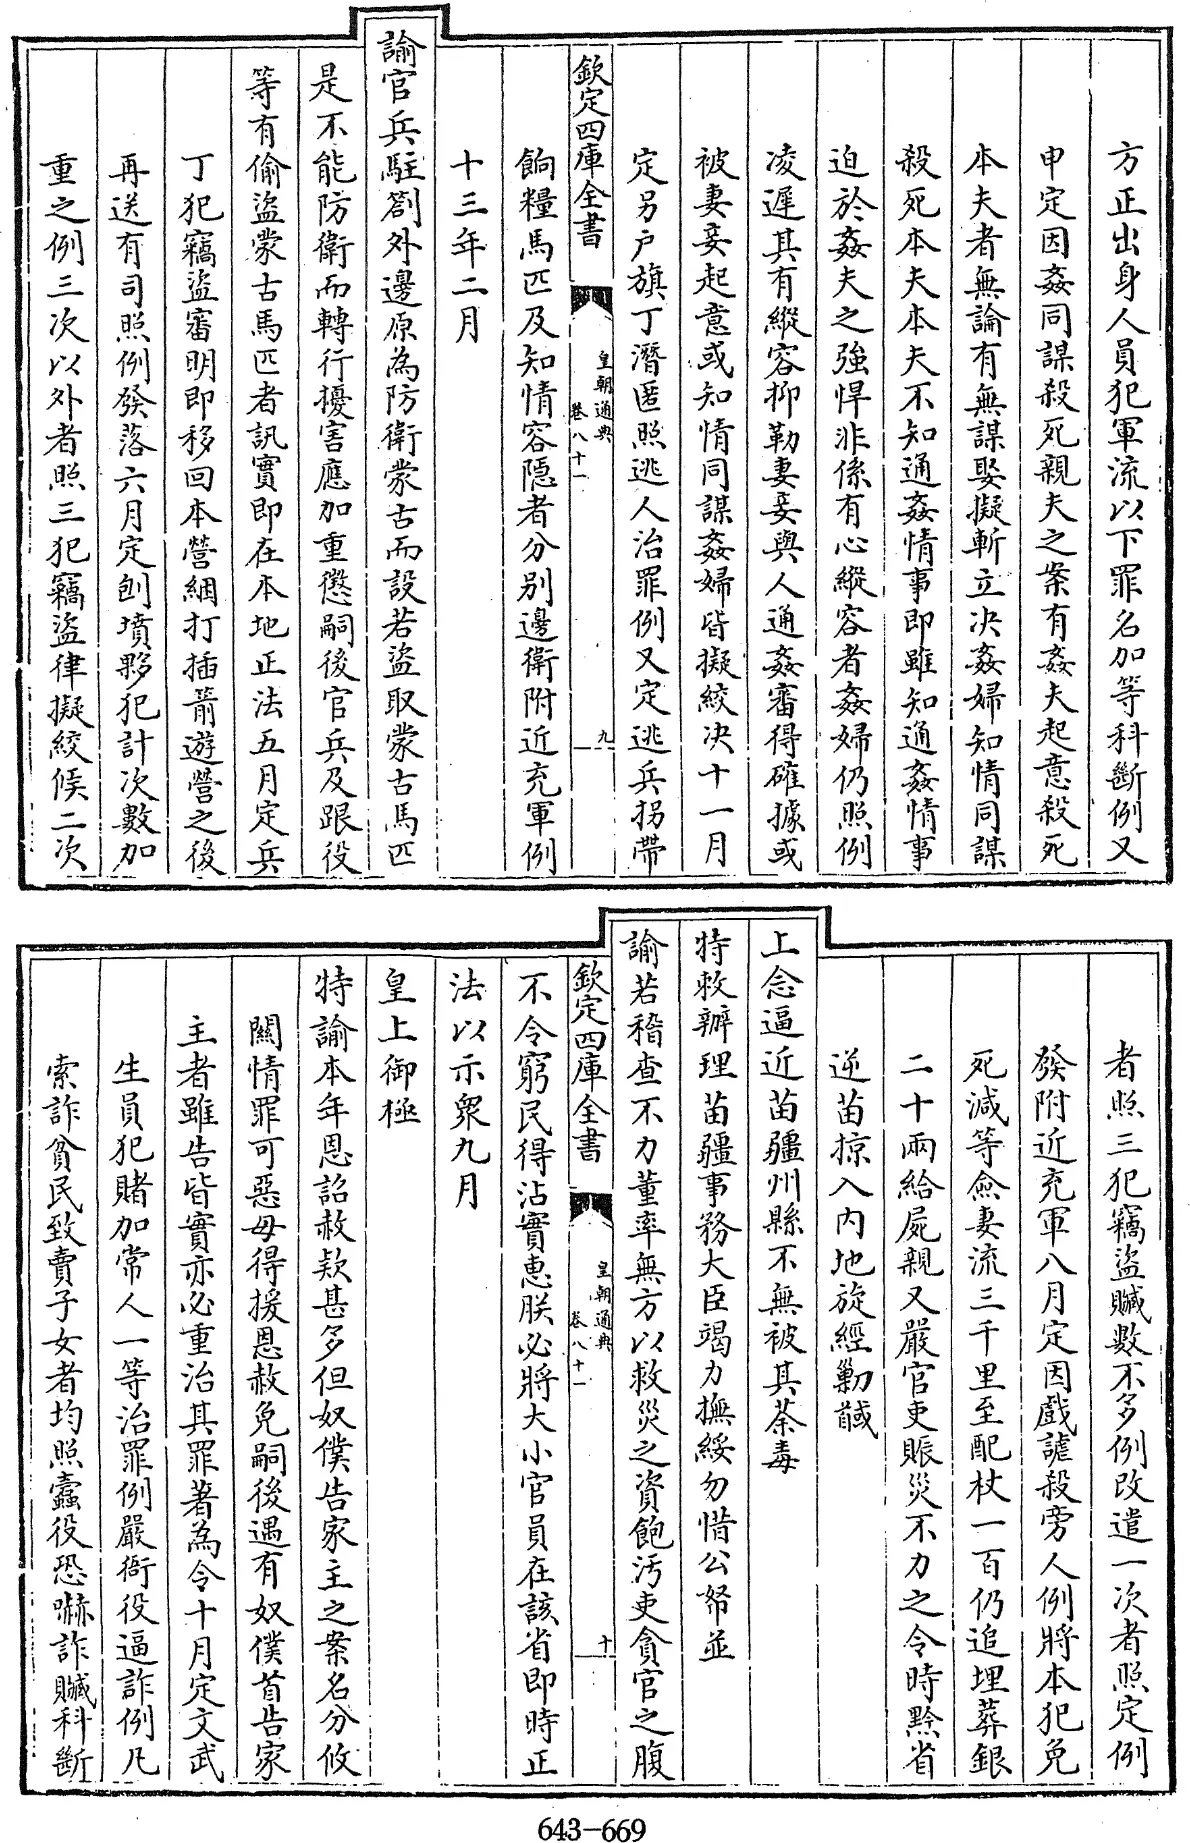 方正出身人員犯軍流以下罪名加等科斷例又
申定因姦同謀殺死親夫之案有姦夫起意殺死
本夫者無論有無謀娶擬斬立决姦婦知情同謀
殺死本夫本夫不知通姦情事即雖知通姦情事
迫於姦夫之強悍非係有心縱容者姦婦仍照例
凌遲其有縱容抑勒妻妾與人通姦審得確據或
被妻妾起意或知情同謀姦婦皆擬絞决十一月
定另户旗丁潛匿照逃人治罪例又定逃兵拐帶
欽定四庫全書
皇朝通典
卷八十一
九
餉糧馬匹及知情容隱者分别邊衛附近充軍例
十三年二月
諭官兵駐劄外邊原為防衛蒙古而設若盜取蒙古馬匹
是不能防衛而轉行擾害應加重懲嗣後官兵及跟役
等有偷盜蒙古馬匹者訊實即在本地正法五月定兵
丁犯竊盜審明即移回本營綑打插箭遊營之後
再送有司照例發落六月定刨墳夥犯計次數加
重之例三次以外者照三犯竊盜律擬絞候二次
者照三犯竊盜贓數不多例改遣一次者照定例
發附近充軍八月定因戲謔殺旁人例將本犯免
死減等僉妻流三千里至配杖一百仍追埋葬銀
二十兩給屍親又嚴官吏賑災不力之令時黔省
逆苗掠入内地旋經勦馘
上念逼近苗疆州縣不無被其荼毒
特敕辦理苗疆事務大臣竭力撫綏勿惜公帑並
諭若稽查不力董率無方以救災之資飽汚吏貪官之腹
欽定四庫全書
皇朝通典
卷八十一
十
不令窮民得沾實惠朕必將大小官員在該省即時正
法以示衆九月
皇上御極
特諭本年恩詔赦款甚多但奴僕告家主之案名分攸
關情罪可惡毋得援恩赦免嗣後遇有奴僕首告家
主者雖告皆實亦必重治其罪著為令十月定文武
生員犯賭加常人一等治罪例嚴衙役逼詐例凡
索詐貧民致賣子女者均照蠹役恐嚇詐贓科斷
643-669